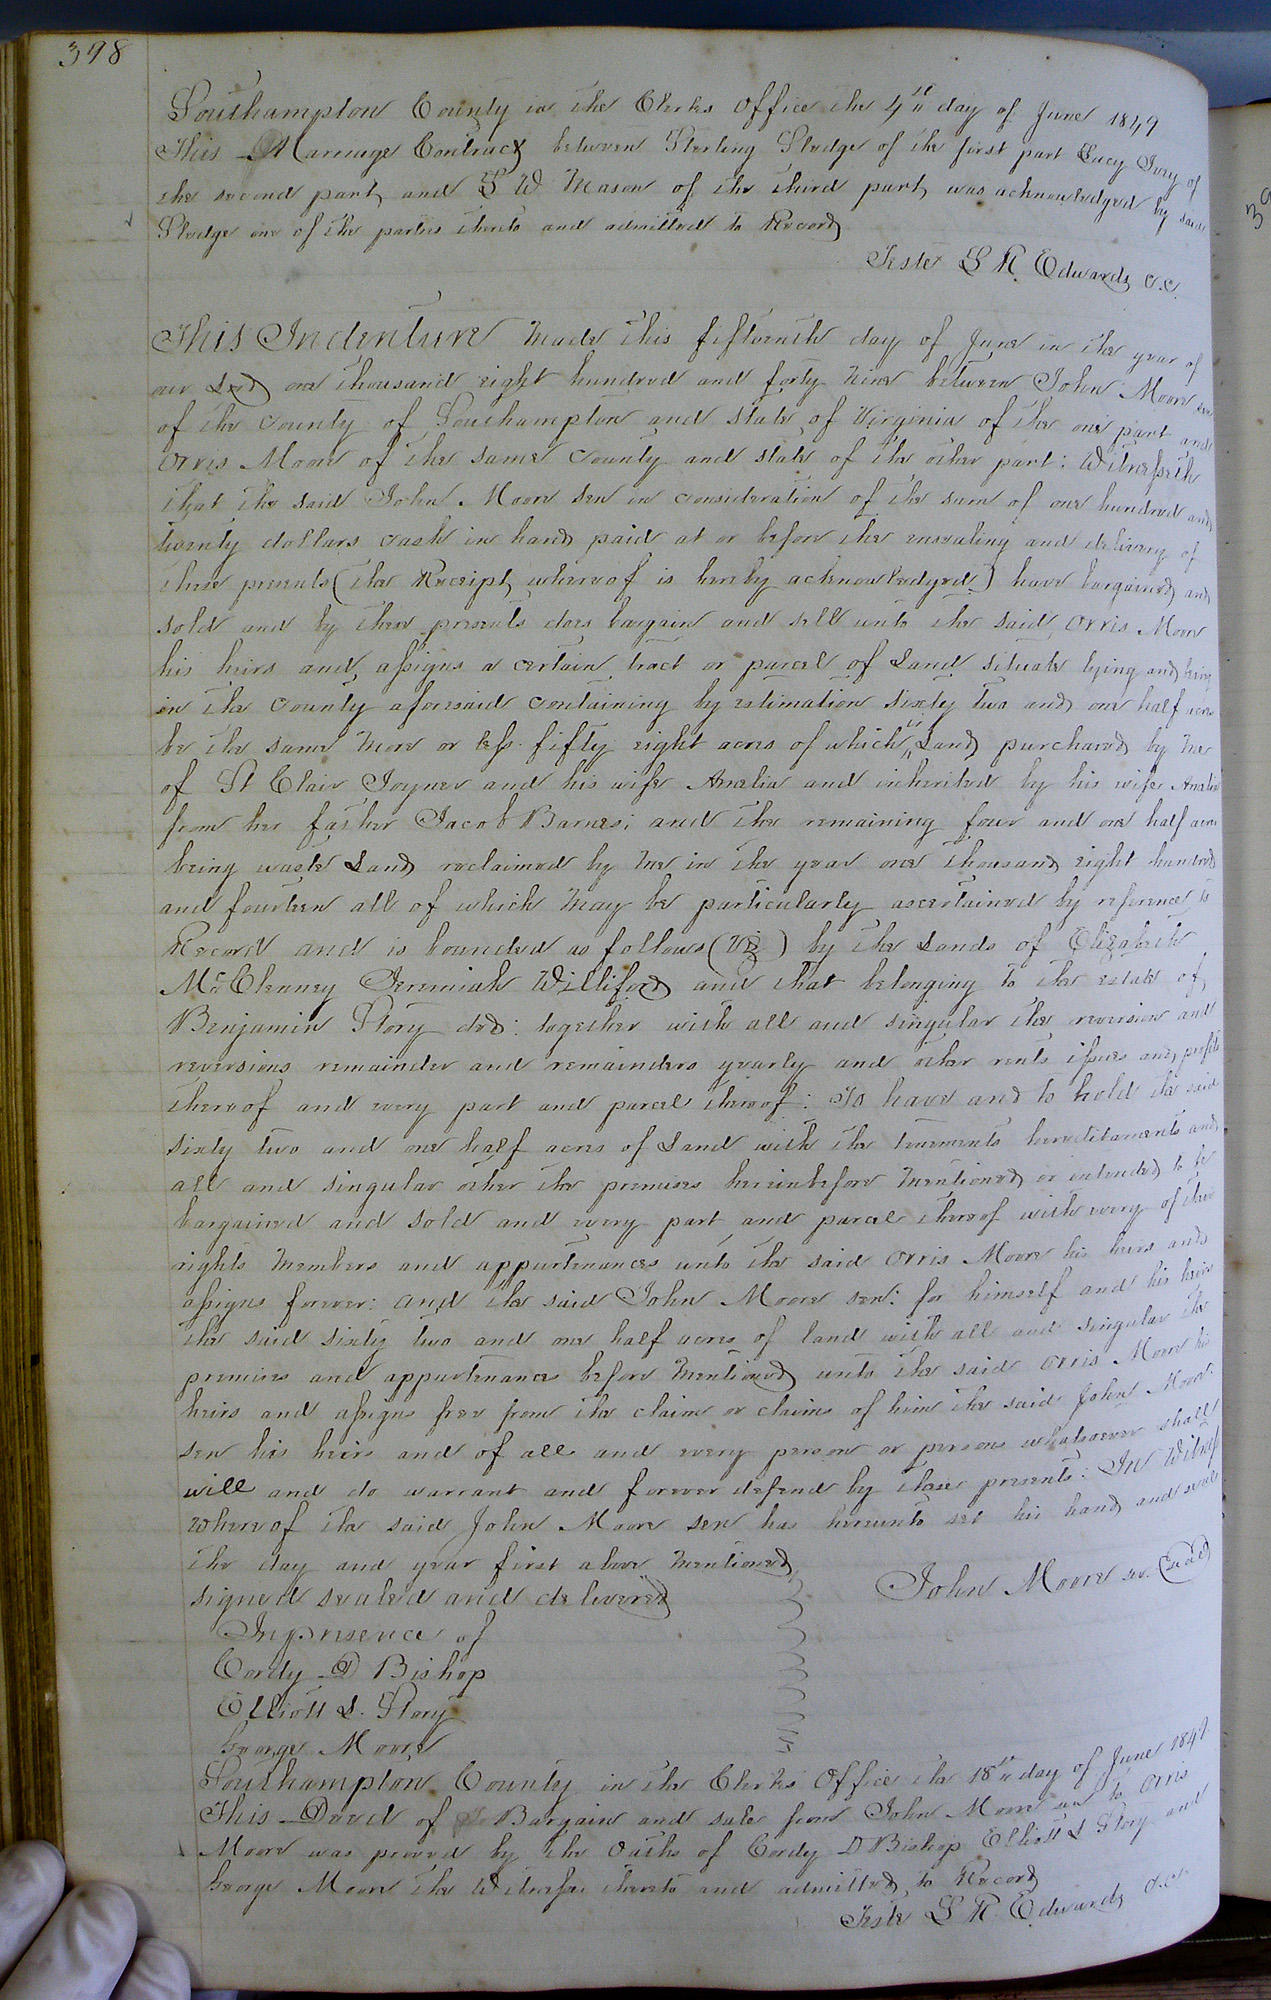 398
Southampton County in the Clerks Office the 4th day of June 1849
This Marriage Contract between Sterling Sledge of the first part Lucy Ivey of
the second part and S W Mason of the third part was acknowledged by said
Sledge one of the parties thereto and admitted to Record
Teste L R Edwards c.c.
This Indenture Made this fifteenth day of June in the year of
our Lord one thousand eight hundred and forty nine between John Moore sen
of the County of Southampton and state of Virginia of the one part and
Orris Moore of the same County and state of the other part: Witnesseth
that the said John Moore sen in consideration of the sum of one hundred and
twenty dollars cash in hand paid at or before the ensealing and delivery of
these presents (the Receipt whereof is hereby acknowledged) have bargained and
sold and by these presents does bargain and sell unto the said Orris Moore
his heirs and assigns a certain tract or parcel of Land situate lying and being
in the County aforesaid containing by estimation sixty two and one half acres
be the same more or less. fifty eight acres of which Land purchased by me
of St Clair Joyner and his wife Amelia and inherited by his wife Amelia
from her father Jacob Barnes; and the remaining four and one half acres
being waste Land reclaimed by me in the year one thousand eight hundred
and fourteen all of which may be particularly ascertained by reference to
Record and is bounded as follows (Viz) by the Lands of Elizabeth
McClenney Jeremiah Williford and that belonging to the estate of
Benjamin Story decd: together with all and singular the reversion and
reversions remainder and remainders yearly and other rents issues and profits
thereof and every part and parcel thereof: To have and to hold the said
sixty two and one half acres of Land with the tenements hereditaments and
all and singular other the premises hereinbefore mentioned or intended to be
bargained and sold and every part and parcel thereof with every of their
rights members and appurtenances unto the said Orris Moore his heirs and
assigns forever: and the said John Moore sen: for himself and his heirs
the said sixty two and one half acres of land with all and singular the
premises and appurtenances before mentioned unto the said Orris Moore his
heirs and assigns free from the claim or claims of him the said John Moore
sen his heirs and of all and every person or persons whatsoever shall
will and do warrant and forever defend by these presents: In Witness
whereof the said John Moore sen has hereunto set his hand and seal
the day and year first above mentioned
signed sealed and delivered
John Moore sen. (seal)
In presence of
Cordy D Bishop
Elliott L. Story
George Moore
Southampton County in the Clerks Office the 18th day of June 1849
This Deed of Bargain and sale from John Moore sen to Orris
Moore was proved by the Oaths of Cordy D Bishop Elliott L Story and
George Moore the Witnesses thereto and admitted to Record
Teste L R Edwards c.c.